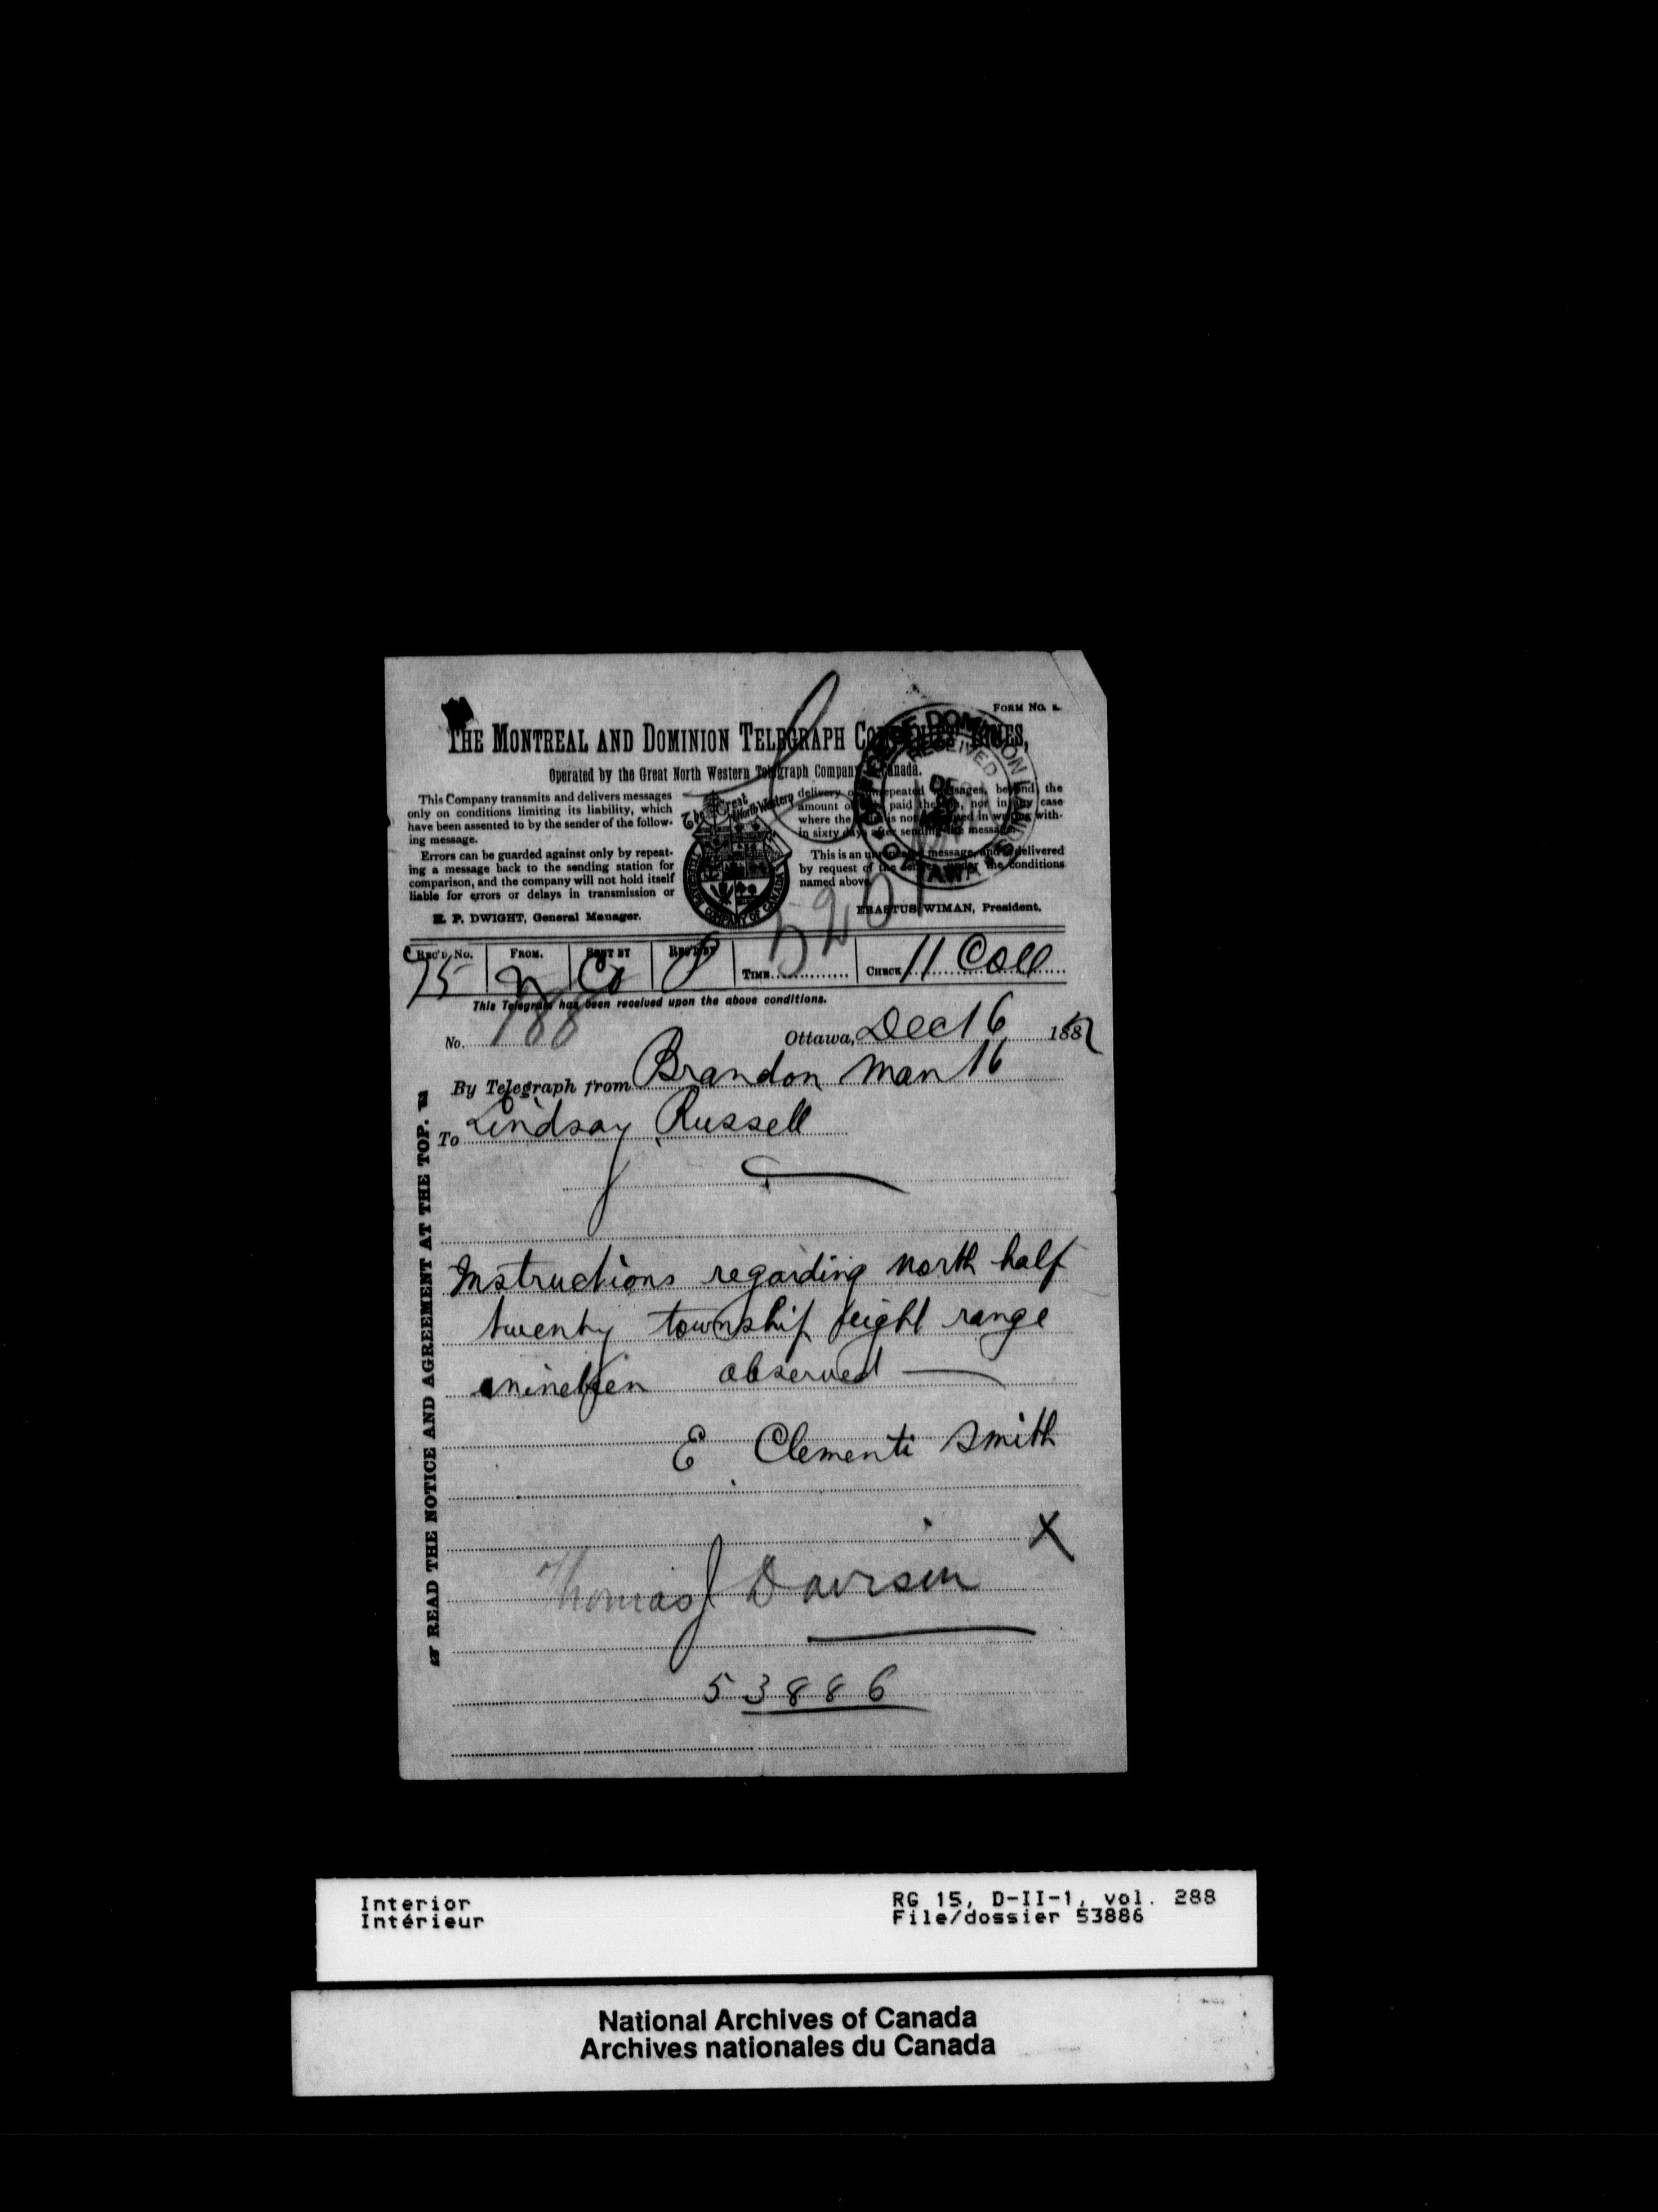 FORM No. 2.
THE MONTREAL AND DOMINION TELEGRAPH COMPANIES' LINES,
Operated by the Great North Western Telegraph Company of Canada.
This Company transmits and delivers messages
only on conditions limiting its liability, which
have been assented to by the sender of the follow-
ing message.
Errors can be guarded against only by repeat-
ing a message back to the sending station for
comparison, and the company will not hold itself
liable for errors or delays in transmission or
H. P. DWIGHT, General Manager.
The Great North Western
TELEGRAPH COMPANY OF CANADA
delivery of unrepeated messages, beyond the
amount of tolls paid thereon, nor in any case
where the claim is not presented in writing with-
in sixty days after sending the message.
This is an unrepeated message, and is delivered
by request of the sender under the conditions
named above.
ERASTUS WIMAN, President.
DOMINION LANDS
RECEIVED
DEC
OTTAWA
REC'D No. FROM. SENT BY REC'D BY TIME CHECK
75 Co 11 Coll
This Telegram has been received upon the above conditions.
No. 188 Ottawa, Dec 16 1882
By Telegraph from Brandon Man 16
To Lindsay Russell
Instructions regarding north half
twenty township eight range
nineteen observed
E Clementi Smith
X
Thomas J Davison
53886
READ THE NOTICE AND AGREEMENT AT THE TOP.
Interior RG 15, D-II-1, vol. 288
Intérieur File/dossier 53886
National Archives of Canada
Archives nationales du Canada